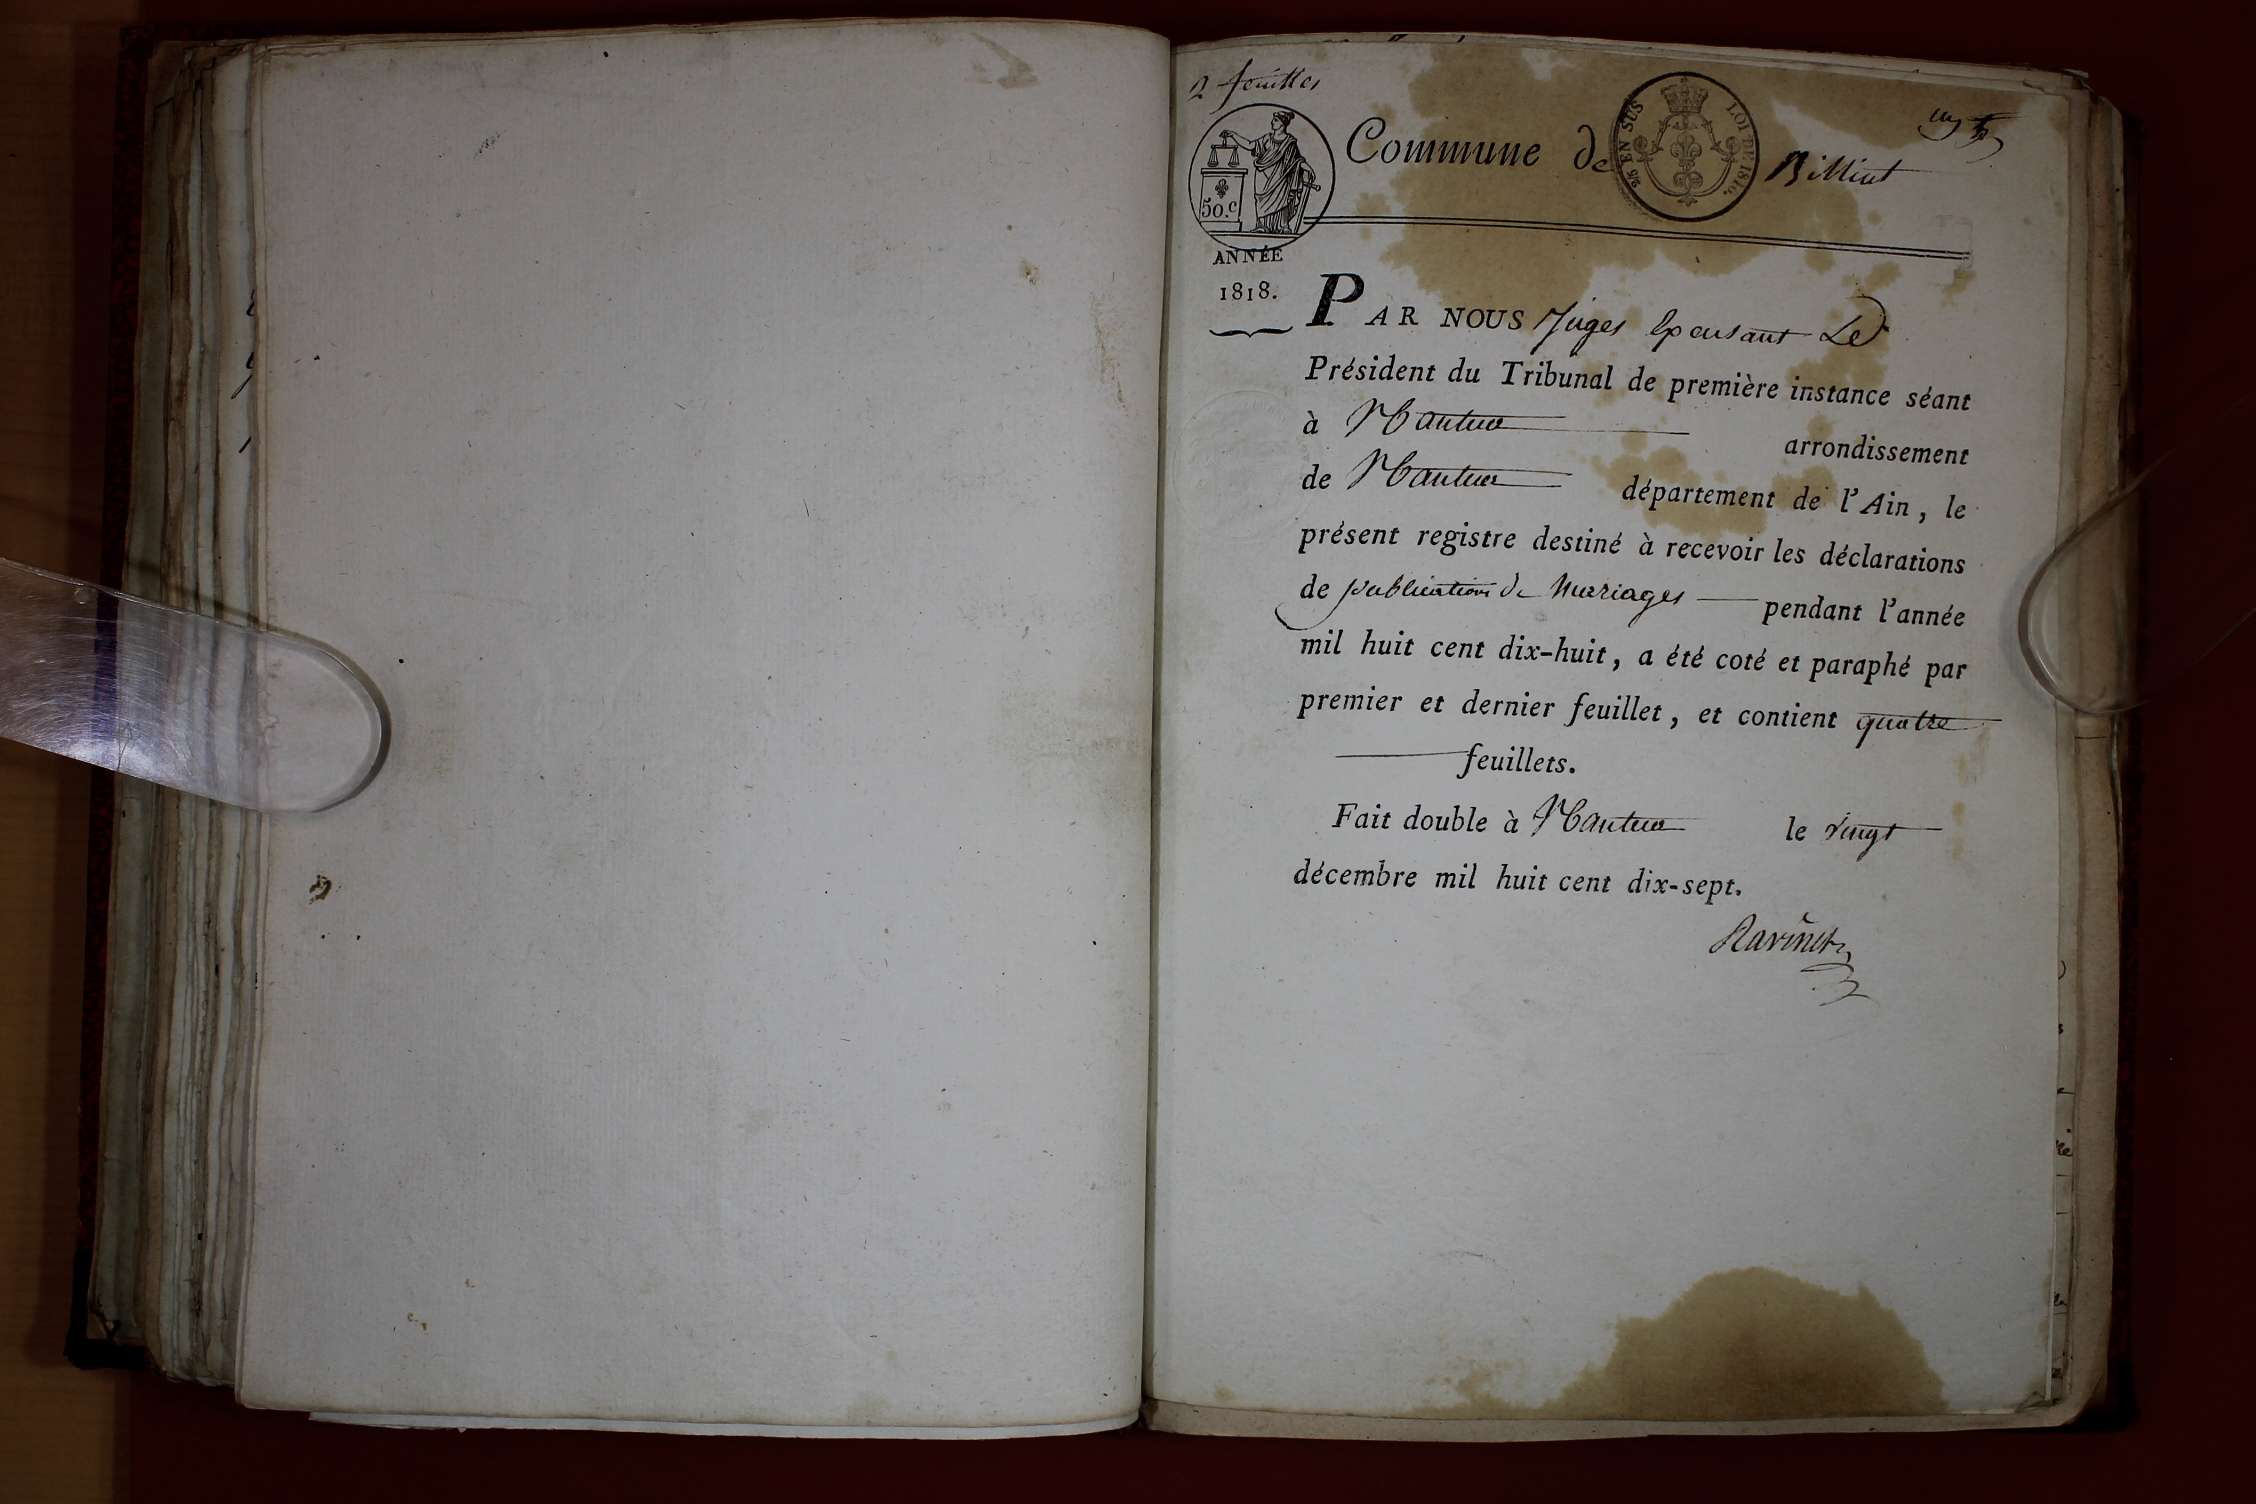 2 feuilles
un
Commune de Billiat
2/5 EN SUS LOI DE 1816.
50.c
ANNÉE
1818.
PAR NOUS Juges Exerçant Le
Président du Tribunal de première instance séant
à Nantua arrondissement
de Nantua département de l'Ain, le
présent registre destiné à recevoir les déclarations
de publication de Mariages pendant l'année
mil huit cent dix-huit, a été coté et paraphé par
premier et dernier feuillet, et contient quatre
feuillets.
Fait double à Nantua le vingt
décembre mil huit cent dix-sept.
Ravinet